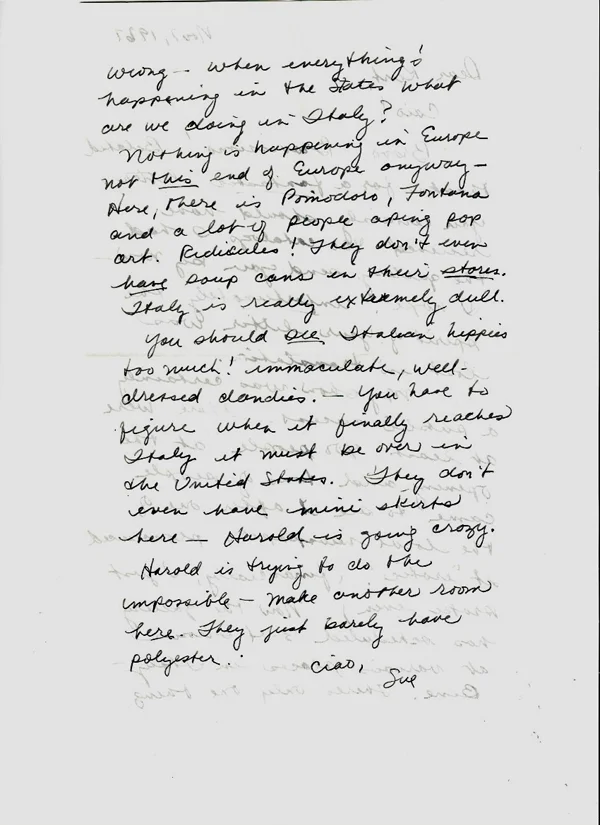 wrong — when everything's
happening in the States what
are we doing in Italy?
Nothing is happening in Europe
not this end of Europe anyway —
Here, there is Pomodoro, Fontana
and a lot of people aping pop
art. Ridicules! They don't even
have soup cans in their stores.
Italy is really extremely dull.
You should see Italian hippies
too much! immaculate, well-
dressed dandies. — You have to
figure when it finally reaches
Italy it must be over in
the United States. They don't
even have mini skirts
here — Harold is going crazy.
Harold is trying to do the
impossible — make another room
here. They just barely have
polyester.
Ciao,
Sue